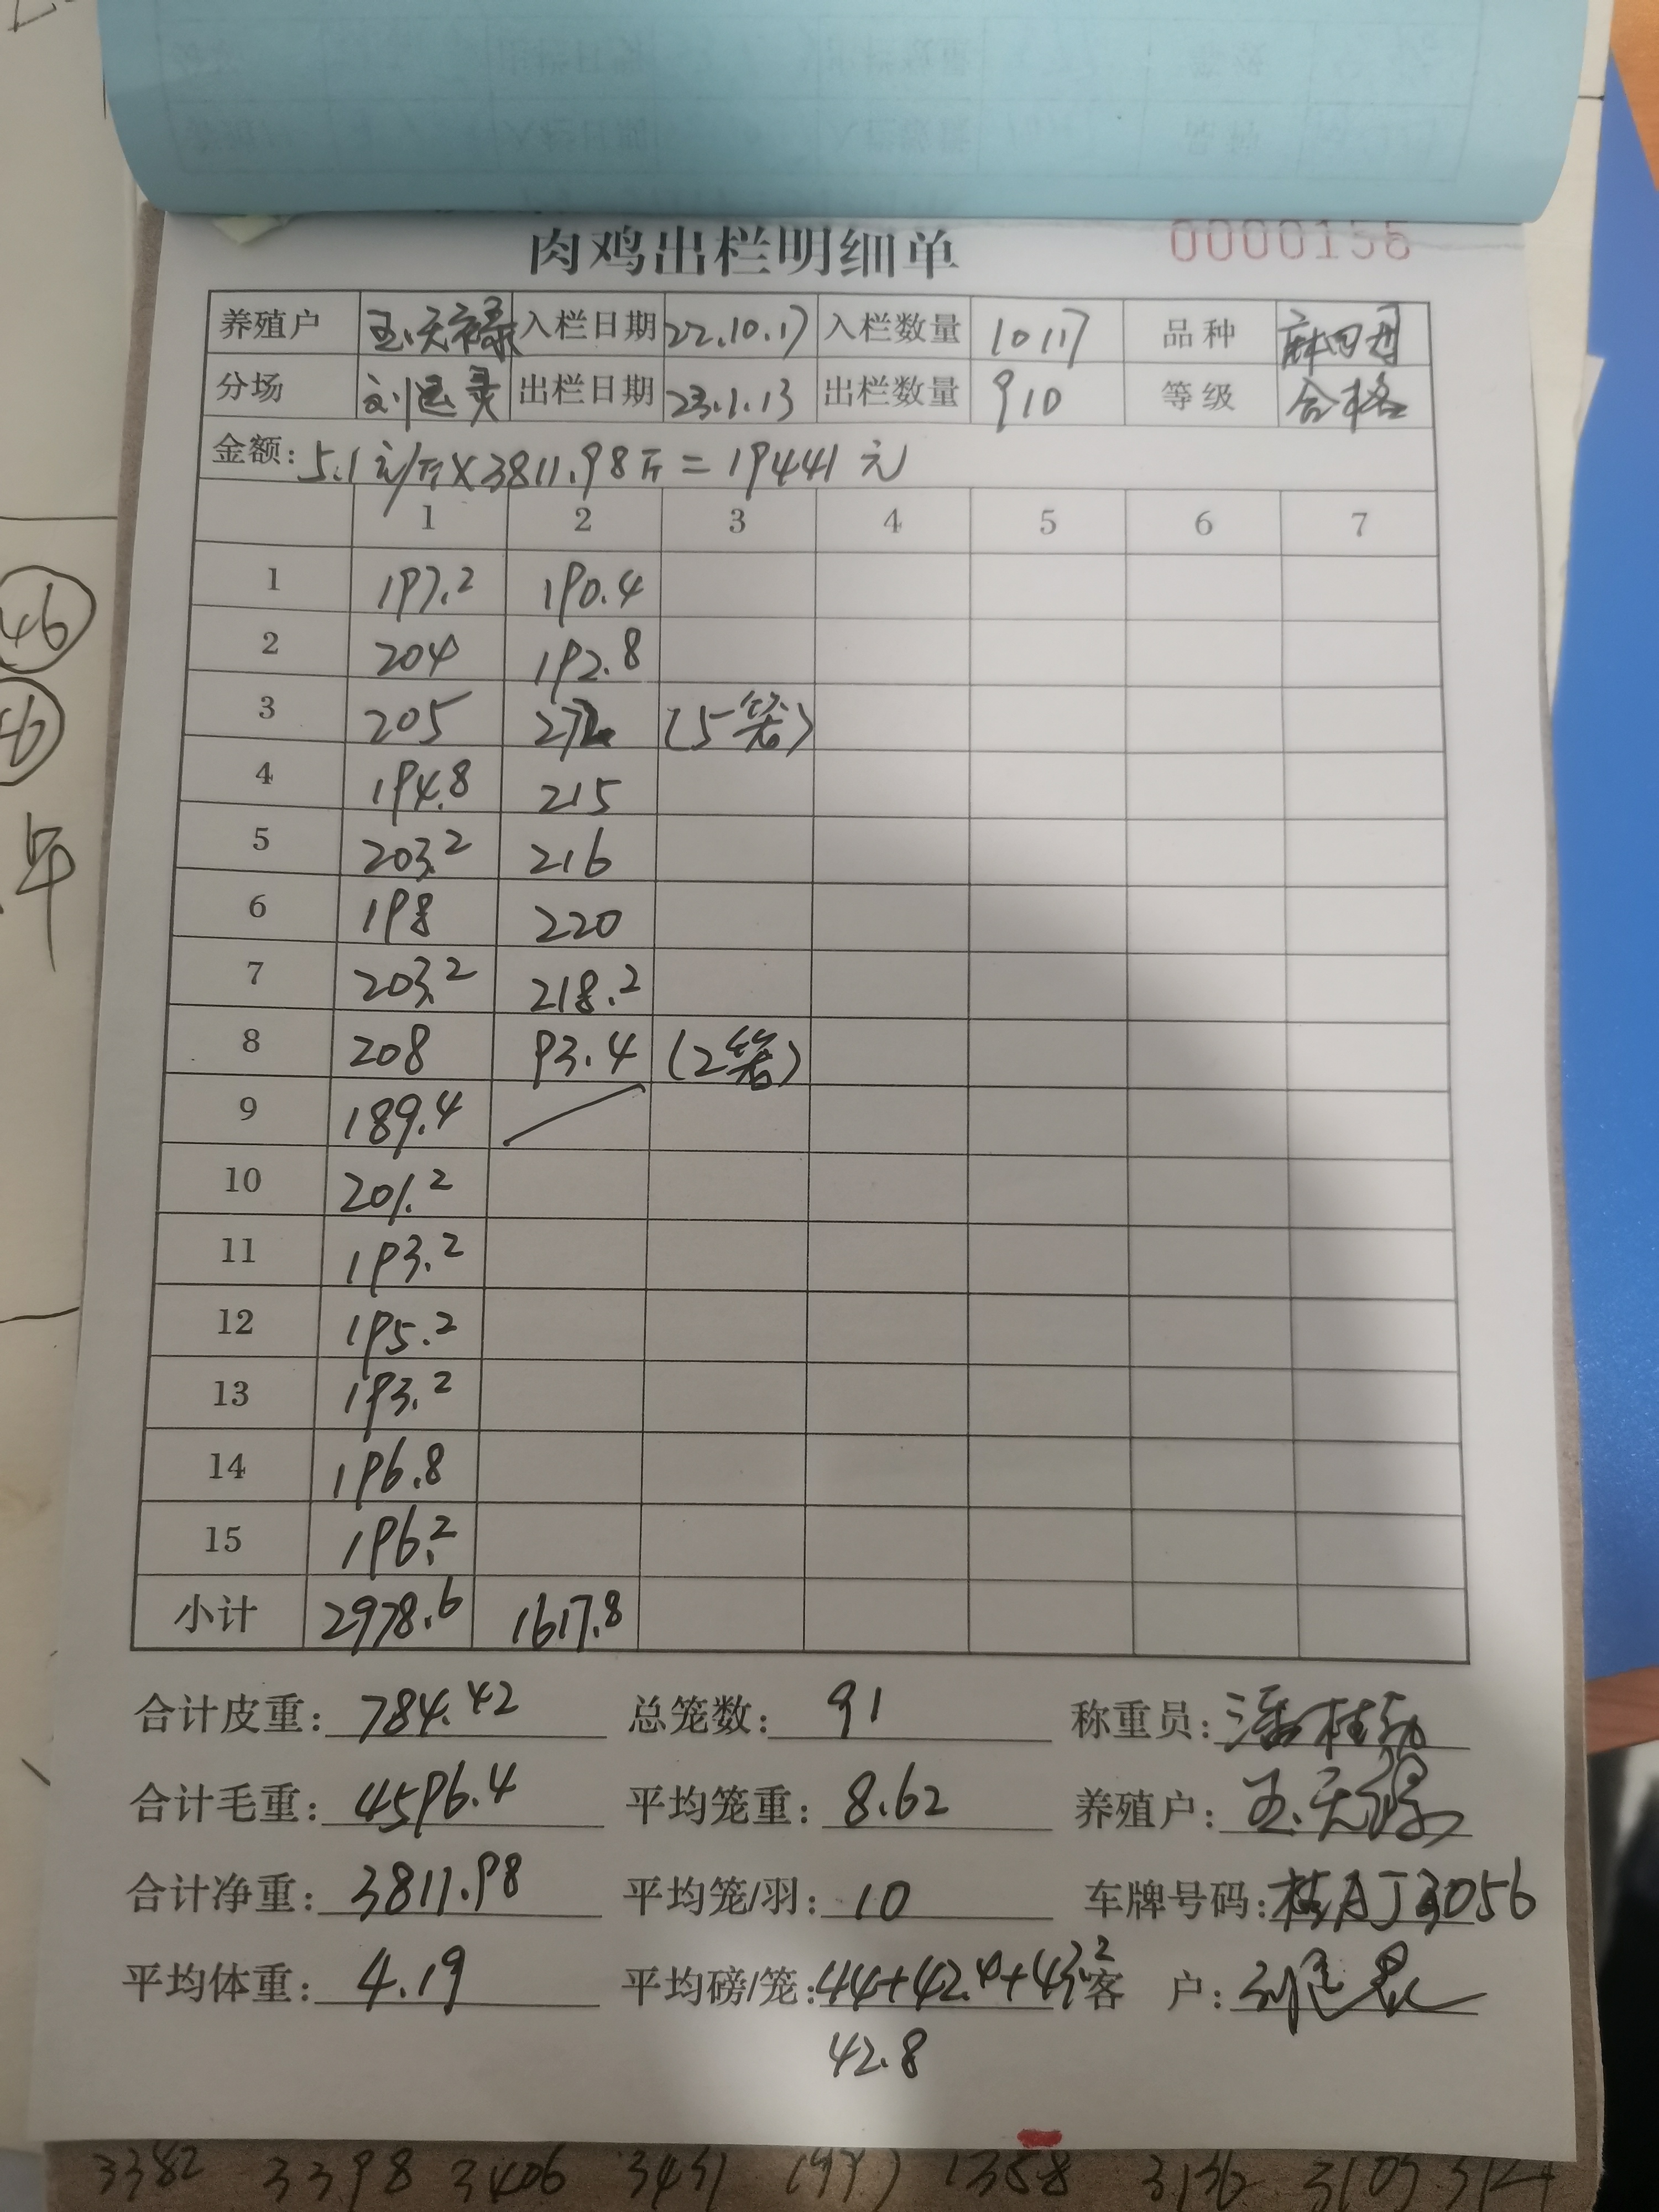 肉鸡出栏明细单 0000156
养殖户 王天禄 入栏日期 22.10.17 入栏数量 10117 品种
分场 出栏日期 23.1.13 出栏数量 910 等级 合格
金额: 5.1元/斤×3811.98斤=19441元
1 2 3 4 5 6 7
1 197.2 190.4
2 204 192.8
3 205 272 (5笼)
4 194.8 215
5 203.2 216
6 198 220
7 203.2 218.2
8 208 93.4 (2笼)
9 189.4
10 201.2
11 193.2
12 195.2
13 193.2
14 196.8
15 196.2
小计 2978.6 1617.8
合计皮重: 784.42 总笼数: 91 称重员:
合计毛重: 4596.4 平均笼重: 8.62 养殖户: 王天禄
合计净重: 3811.98 平均笼/羽: 10 车牌号码: 桂AJ3056
平均体重: 4.19 平均磅/笼: 44+42.4+43.2 客 户:
42.8
3382 3398 3406 3431 1358 3136
46
年